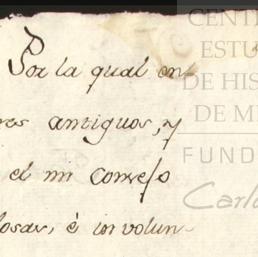 Por la qual en
res antiguos, y
el mi Consejo
losas, è in volun-
CENT
ESTU
DE HIS
DE M
FUND
Carlo